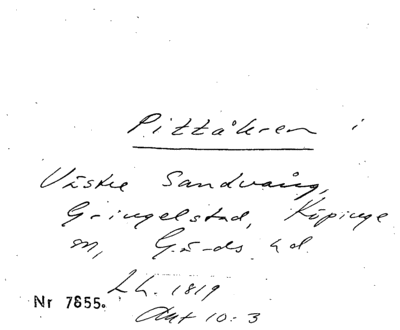 Pittåkren i
Västre Sandvång,
Gringelstad, Köpinge
sn, Gärds hd.
Lh. 1819
Akt 10:3
Nr 7655.